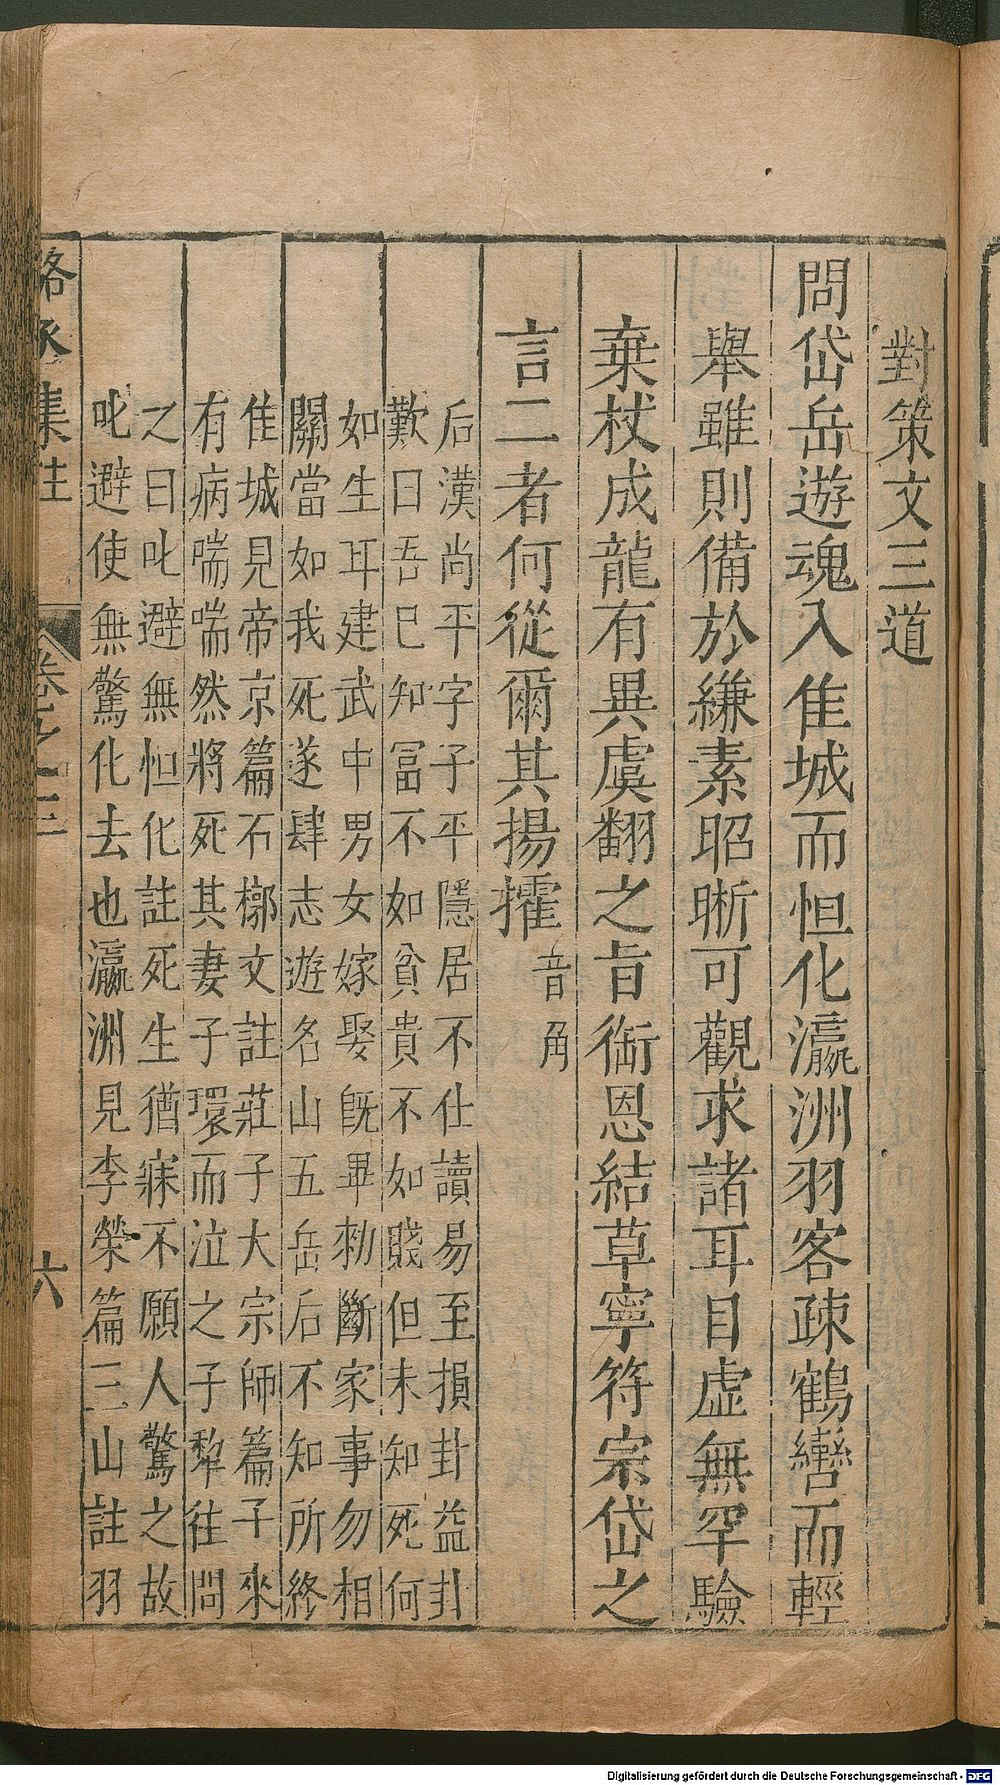 對策文三道
問岱岳遊魂入隹城而怛化瀛洲羽客疎鶴轡而輕
舉雖則備於縑素昭晰可觀求諸耳目虛無罕驗
棄杖成龍有異虞翻之旨銜恩結草寧符宗岱之
言二者何從爾其揚㩁音角
后漢尚平字子平隱居不仕讀易至損卦益卦
歎曰吾已知冨不如貧貴不如賤但未知死何
如生耳建武中男女嫁娶旣畢勑斷家事勿相
關當如我死遂肆志遊名山五岳后不知所終
隹城見帝京篇石槨文註莊子大宗師篇子來
有病喘喘然將死其妻子環而泣之子犂往問
之曰叱避無怛化註死生猶寐不願人驚之故
叱避使無驚化去也瀛洲見李榮篇三山註羽
駱丞集註
卷之三
六
Digitalisierung gefördert durch die Deutsche Forschungsgemeinschaft - DFG